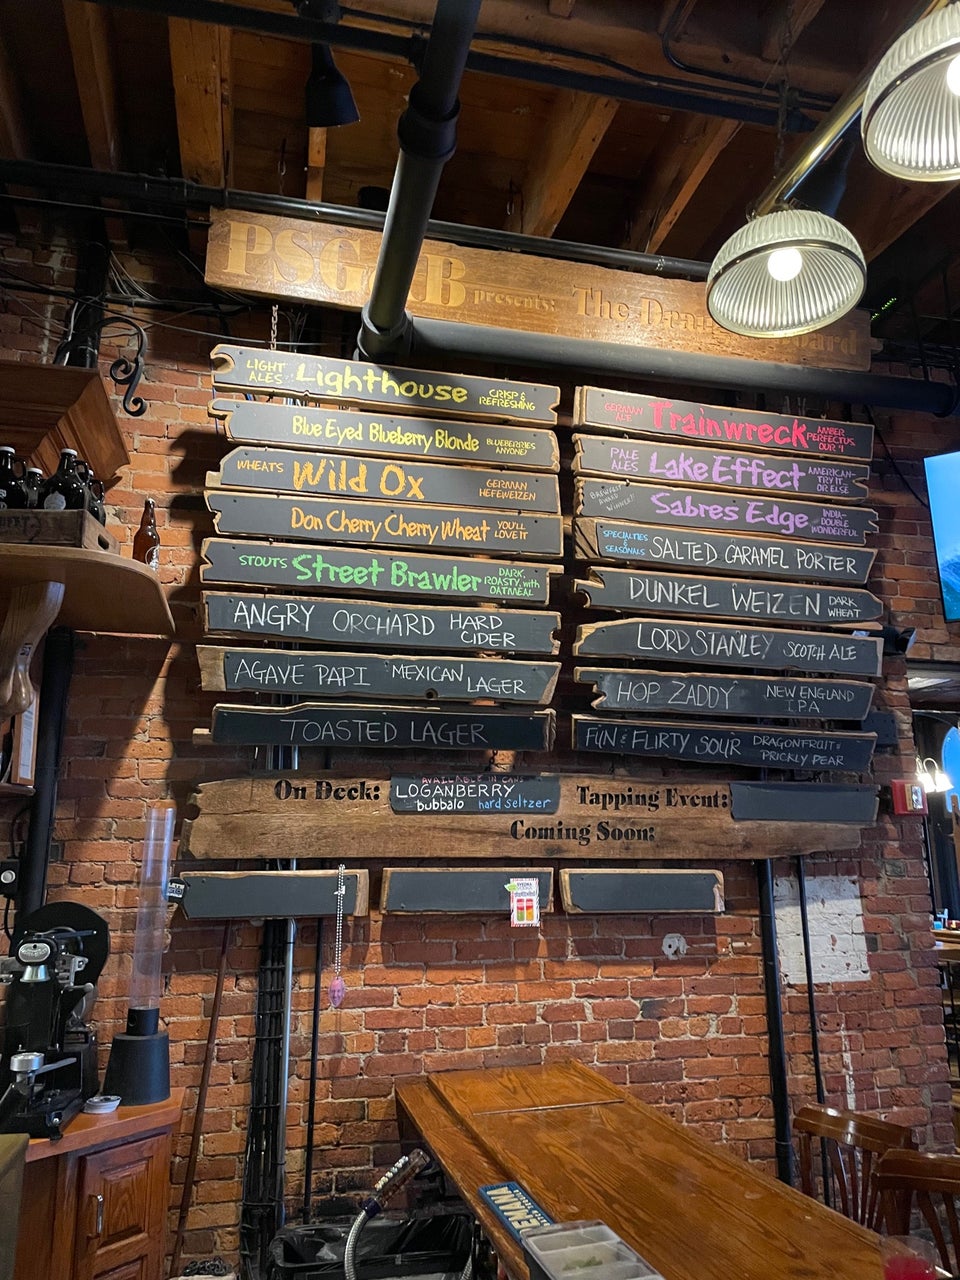 PSG&B presents: The Draught Board
LIGHT ALES Lighthouse CRISP & REFRESHING
Blue Eyed Blueberry Blonde BLUEBERRIES ANYONE?
WHEATS Wild Ox GERMAN HEFEWEIZEN
Don Cherry Cherry Wheat YOU'LL LOVE IT
STOUTS Street Brawler DARK, ROASTY, with OATMEAL
ANGRY ORCHARD HARD CIDER
AGAVE PAPI MEXICAN LAGER
TOASTED LAGER
GERMAN ALE Trainwreck AMBER PERFECTUS, OUR #1
PALE ALES Lake Effect AMERICAN- TRY IT, OR ELSE
BREWFEST AWARD WINNER!! Sabres Edge INDIA- DOUBLE WONDERFUL
SPECIALTIES & SEASONALS SALTED CARAMEL PORTER
DUNKEL WEIZEN DARK WHEAT
LORD STANLEY SCOTCH ALE
HOP ZADDY NEW ENGLAND IPA
FUN & FLIRTY SOUR DRAGONFRUIT & PRICKLY PEAR
On Deck:
AVAILABLE IN CANS
LOGANBERRY
bubbalo hard seltzer
Tapping Event:
Coming Soon: